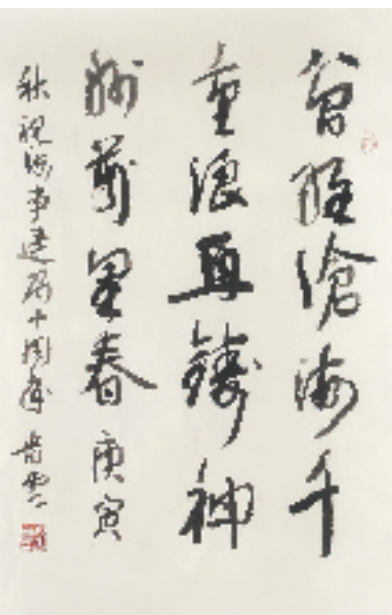 曾經滄海千
重浪再鑄神
州萬里春庚寅
秋祝海事建局十周年